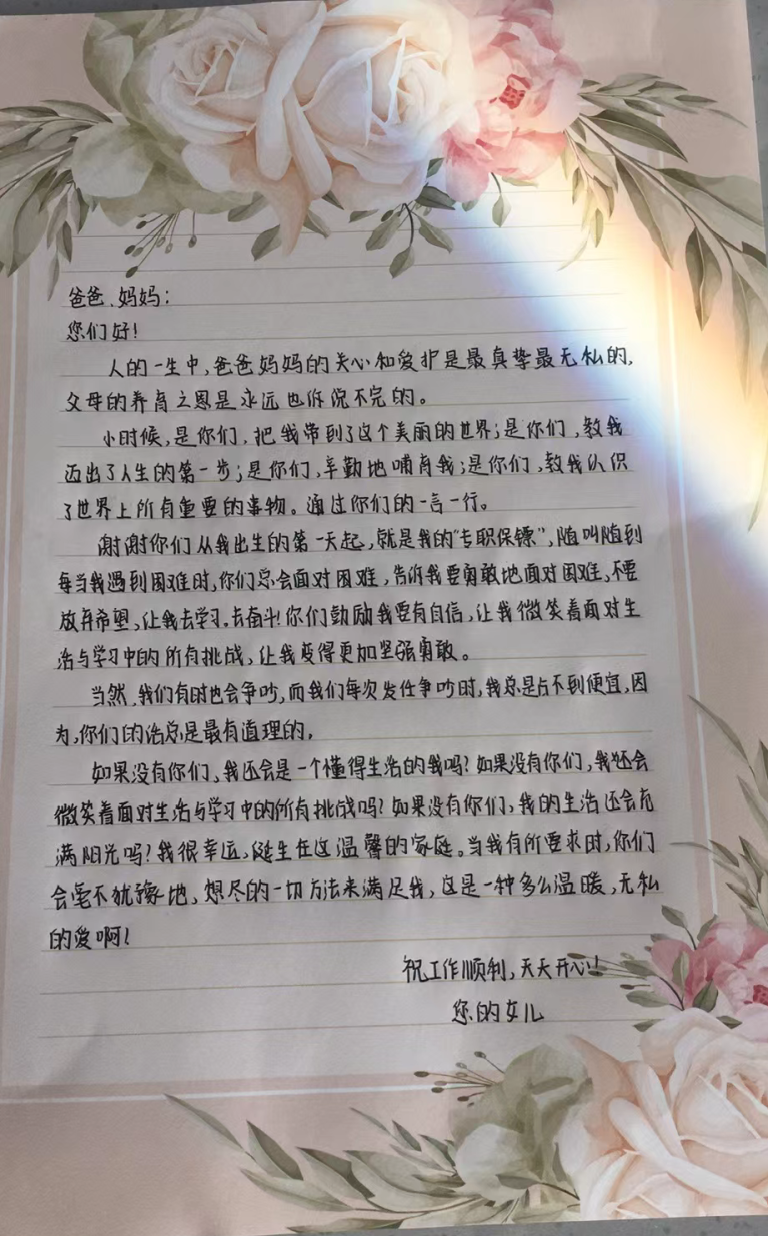 爸爸、妈妈：
您们好！
人的一生中，爸爸妈妈的关心和爱护是最真挚最无私的，
父母的养育之恩是永远也诉说不完的。
小时候，是你们，把我带到了这个美丽的世界；是你们，教我
迈出了人生的第一步；是你们，辛勤地哺育我；是你们，教我认识
了世界上所有重要的事物。通过你们的一言一行。
谢谢你们从我出生的第一天起，就是我的“专职保镖”，随叫随到
每当我遇到困难时，你们总会面对困难，告诉我要勇敢地面对困难，不要
放弃希望，让我去学习，去奋斗！你们鼓励我要有自信，让我微笑着面对生
活与学习中的所有挑战，让我变得更加坚强勇敢。
当然，我们有时也会争吵，而我们每次发生争吵时，我总是占不到便宜，因
为，你们的话总是最有道理的，
如果没有你们，我还会是一个懂得生活的我吗？如果没有你们，我还会
微笑着面对生活与学习中的所有挑战吗？如果没有你们，我的生活还会充
满阳光吗？我很幸运，诞生在这温馨的家庭。当我有所要求时，你们
会毫不犹豫地，想尽的一切方法来满足我，这是一种多么温暖，无私
的爱啊！
祝工作顺利，天天开心！！
您的女儿